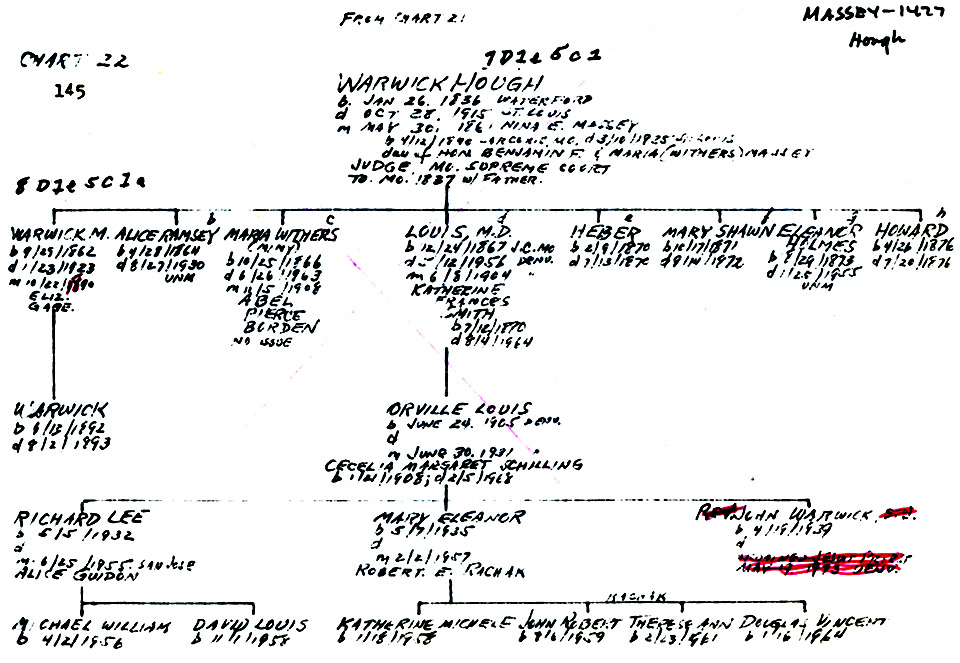 FROM CHART 21
MASSEY-1427
Hough
CHART 22
145
9D1e5c1
WARWICK HOUGH
b. JAN 26. 1836 WATERFORD
d OCT 28, 1915 ST. LOUIS
m MAY 30, 1861 NINA E. MASSEY
dau of HON BENJAMIN F. & MARIA (WITHERS) MASSEY
JUDGE, MO. SUPREME COURT
TO. MO. 1837 W/ FATHER.
8D1e5c1a
b c d e g h
WARWICK M.
b 9/25/1862
d 1/23/1923
m 10/22/1890
ELIZ.
GAGE.
ALICE RAMSEY
b 4/28/1864
d 8/27/1930
UNM
MARIA WITHERS
(MIMY)
b 10/25/1866
d 6/26/1963
m 11/5/1908
ABEL
PIERCE
BORDEN
NO ISSUE
LOUIS, M.D.
b 12/24/1867 J.C. MO
d 5/12/1956 DENV.
m 6/8/1904 "
KATHERINE
FRANCES
SMITH
b 7/12/1870
d 8/4/1964
HEBER
b 2/9/1870
d 7/13/1870
MARY SHAWN
b 10/17/1871
d 9/14/1872
ELEANOR
HELMES
b 8/29/1873
d 1/25/1955
UNM
HOWARD
b 4/26/1876
d 7/20/1876
WARWICK
b 6/13/1892
d 8/2/1893
ORVILLE LOUIS
b JUNE 24. 1905 DENV.
d
m JUNE 30. 1931 "
CECELIA MARGARET SCHILLING
b 1/21/1908; d 2/5/1968
RICHARD LEE
b 5/5/1932
d
m 6/25/1955 SAN JOSE
ALICE GUIDON
MARY ELEANOR
b 5/9/1935
d
m 2/2/1957
ROBERT E. RACHAK
JOHN WARWICK
b 4/19/1939
d
RACHAK
MICHAEL WILLIAM
b 4/2/1956
DAVID LOUIS
b 11/1/1958
KATHERINE MICHELE
b 1/18/1958
JOHN ROBERT
b 9/6/1959
THERESE ANN
b 2/23/1961
DOUGLAS VINCENT
b 1/16/1964